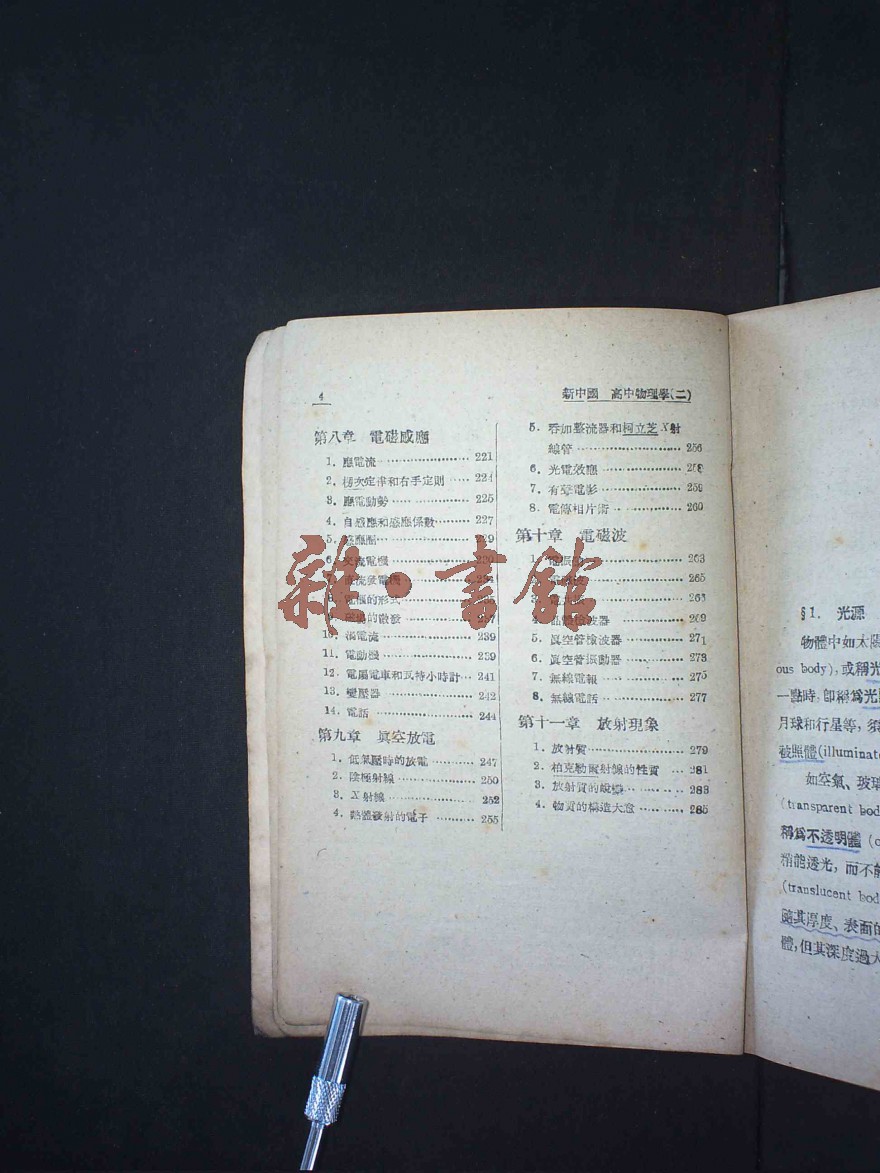 4
新中國　高中物理學(二)
第八章　電磁感應
1. 應電流 221
2. 楞次定律和右手定則 224
3. 應電動勢 225
4. 自感應和感應係數 227
5. 感應圈 229
6. 交流電機
7. 直流發電機
8. 電樞的形式
9. 磁場的激發 237
10. 渦電流 239
11. 電動機 239
12. 電屬電車和瓦特小時計 241
13. 變壓器 242
14. 電話 244
第九章　眞空放電
1. 低氣壓時的放電 247
2. 陰極射線 250
3. X射線 252
4. 熱體發射的電子 255
5. 吞加整流器和柯立芝X射
線管 256
6. 光電效應 258
7. 有聲電影 259
8. 電傳相片術 260
第十章　電磁波
1. 263
2. 電磁波 265
3. 268
4. 晶體檢波器 269
5. 眞空管檢波器 271
6. 眞空管振動器 273
7. 無線電報 275
8. 無線電話 277
第十一章　放射現象
1. 放射質 279
2. 柏克勒爾射線的性質 281
3. 放射質的蛻變 283
4. 物質的構造大意 285
§1. 光源
物體中如太陽
ous body), 或稱光
一點時, 卽稱爲光
月球和行星等, 須
被照體(illuminate
如空氣、玻璃
(transparent bod
稱爲不透明體 (o
稍能透光, 而不能
(translucent bod
隨其厚度、表面的
體, 但其深度過大
雜·書館